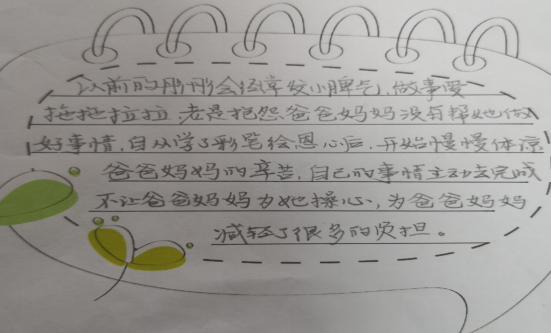 以前的彤彤会经常发小脾气,做事爱
拖拖拉拉,老是抱怨爸爸妈妈没有帮她做
好事情,自从学了彩笔绘恩心后,开始慢慢体凉
爸爸妈妈的辛苦,自己的事情主动去完成
不让爸爸妈妈为她操心,为爸爸妈妈
减轻了很多的负担。